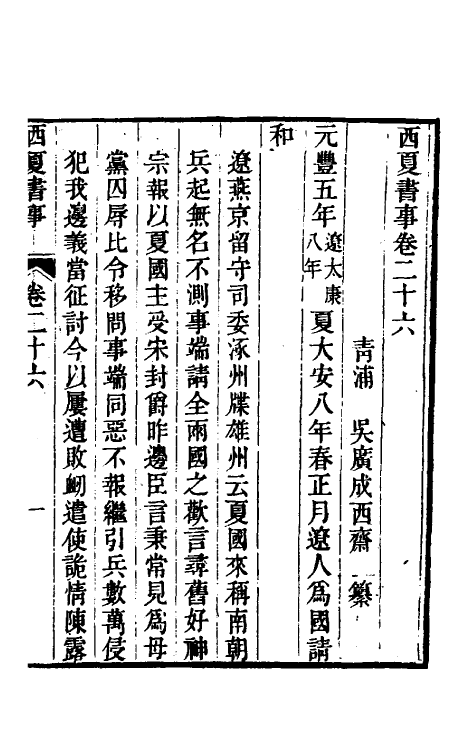 西夏書事卷二十六
青浦　吳廣成西齋　纂
元豐五年遼太康八年夏大安八年春正月遼人爲國請
和
遼燕京留守司委涿州牒雄州云夏國來稱南朝
兵起無名不測事端請全兩國之歡言尋舊好神
宗報以夏國主受宋封爵昨邊臣言秉常見爲母
黨囚辱比令移問事端同惡不報繼引兵數萬侵
犯我邊義當征討今以屢遭敗衂遣使詭情陳露
西夏書事　卷二十六　一